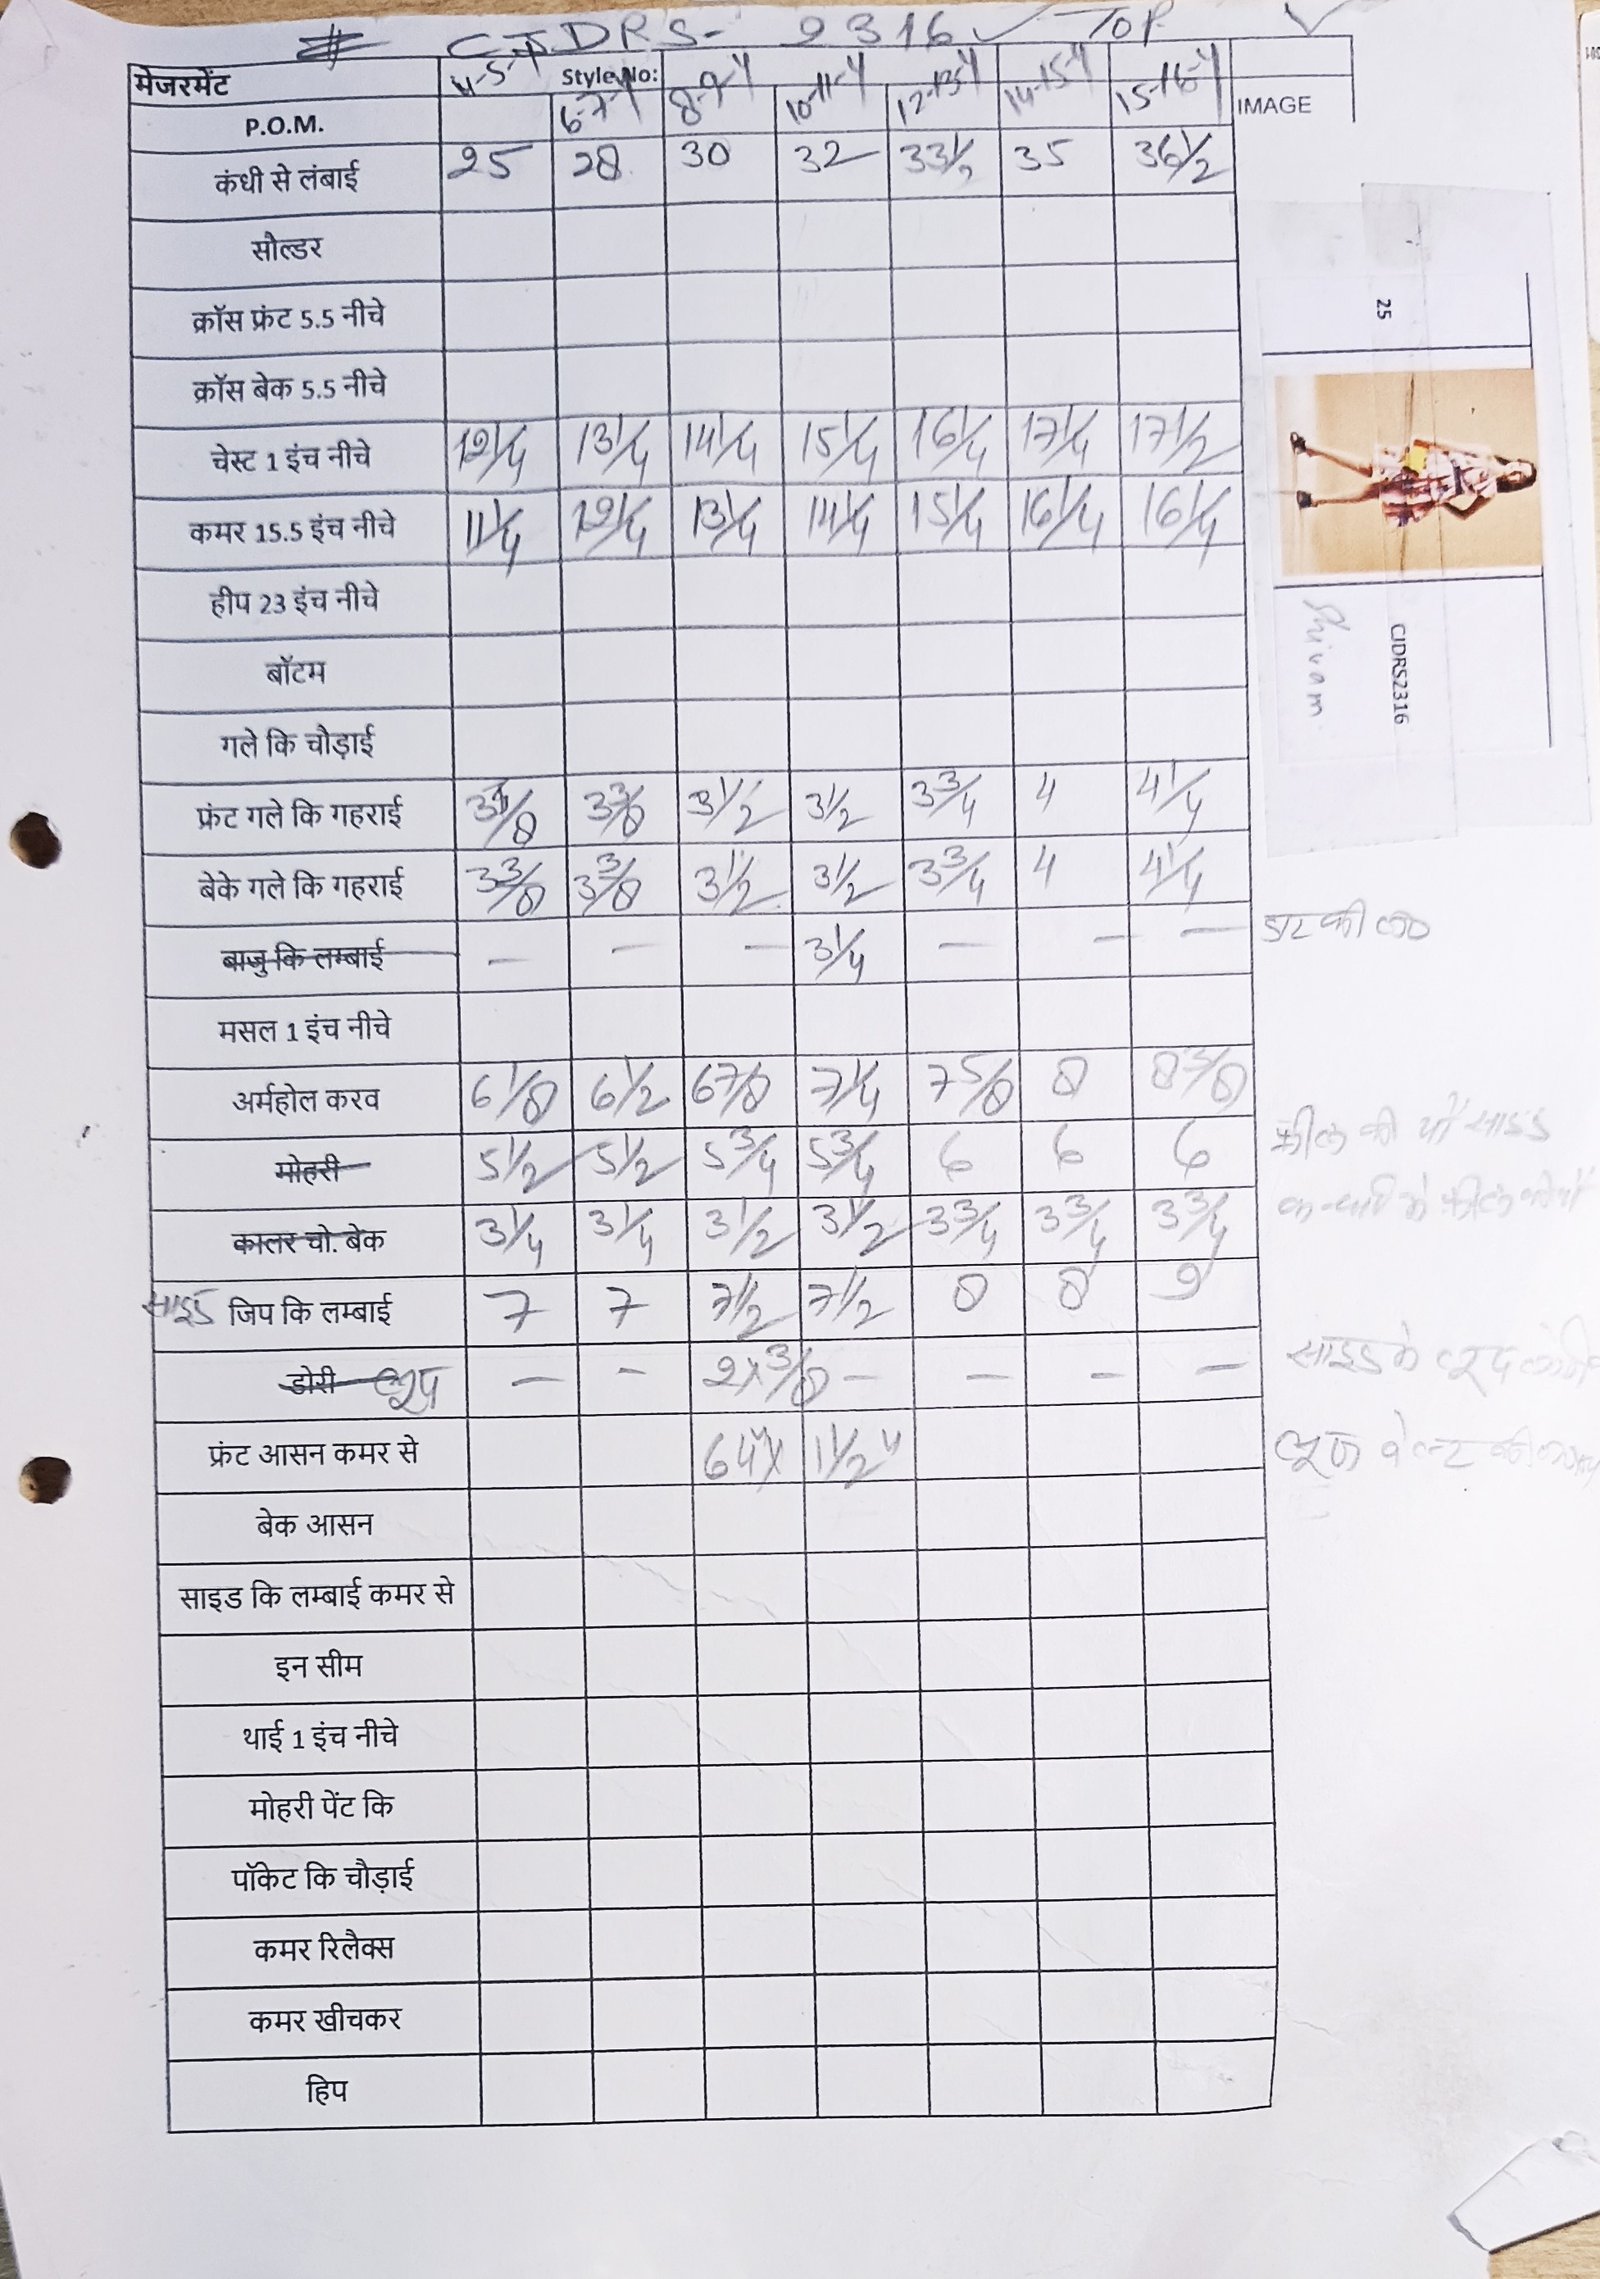 # CJDRS- 2316 ✓ TOP ✓
मेजरमेंट 4-5-Y Style No: 8-9-Y 10-11-Y 12-13-Y 14-15-Y 15-16-Y
P.O.M. 6-7-Y IMAGE
कंधी से लंबाई 25 28 30 32 33 1/2 35 36 1/2
सौल्डर
क्रॉस फ्रंट 5.5 नीचे
क्रॉस बेक 5.5 नीचे
चेस्ट 1 इंच नीचे 12 1/4 13 1/4 14 1/4 15 1/4 16 1/4 17 1/4 17 1/2
कमर 15.5 इंच नीचे 11 1/4 12 1/4 13 1/4 14 1/4 15 1/4 16 1/4 16 1/4
हीप 23 इंच नीचे
बॉटम
गले कि चौड़ाई
फ्रंट गले कि गहराई 3 3/8 3 3/8 3 1/2 3 1/2 3 3/4 4 4 1/4
बेके गले कि गहराई 3 3/8 3 3/8 3 1/2 3 1/2 3 3/4 4 4 1/4
बाजु कि लम्बाई — — — 3 1/4 — — —
मसल 1 इंच नीचे
अर्महोल करव 6 1/8 6 1/2 6 7/8 7 1/4 7 5/8 8 8 3/8
मोहरी 5 1/2 5 1/2 5 3/4 5 3/4 6 6 6
कालर चो. बेक 3 1/4 3 1/4 3 1/2 3 1/2 3 3/4 3 3/4 3 3/4
साइड जिप कि लम्बाई 7 7 7 1/2 7 1/2 8 8 9
डोरी लूप — — 2x3/8 — — — —
फ्रंट आसन कमर से 64"x 1 1/2"
बेक आसन
साइड कि लम्बाई कमर से
इन सीम
थाई 1 इंच नीचे
मोहरी पेंट कि
पॉकेट कि चौड़ाई
कमर रिलैक्स
कमर खीचकर
हिप
25
CJDRS2316
Shivam
साइड के लूप